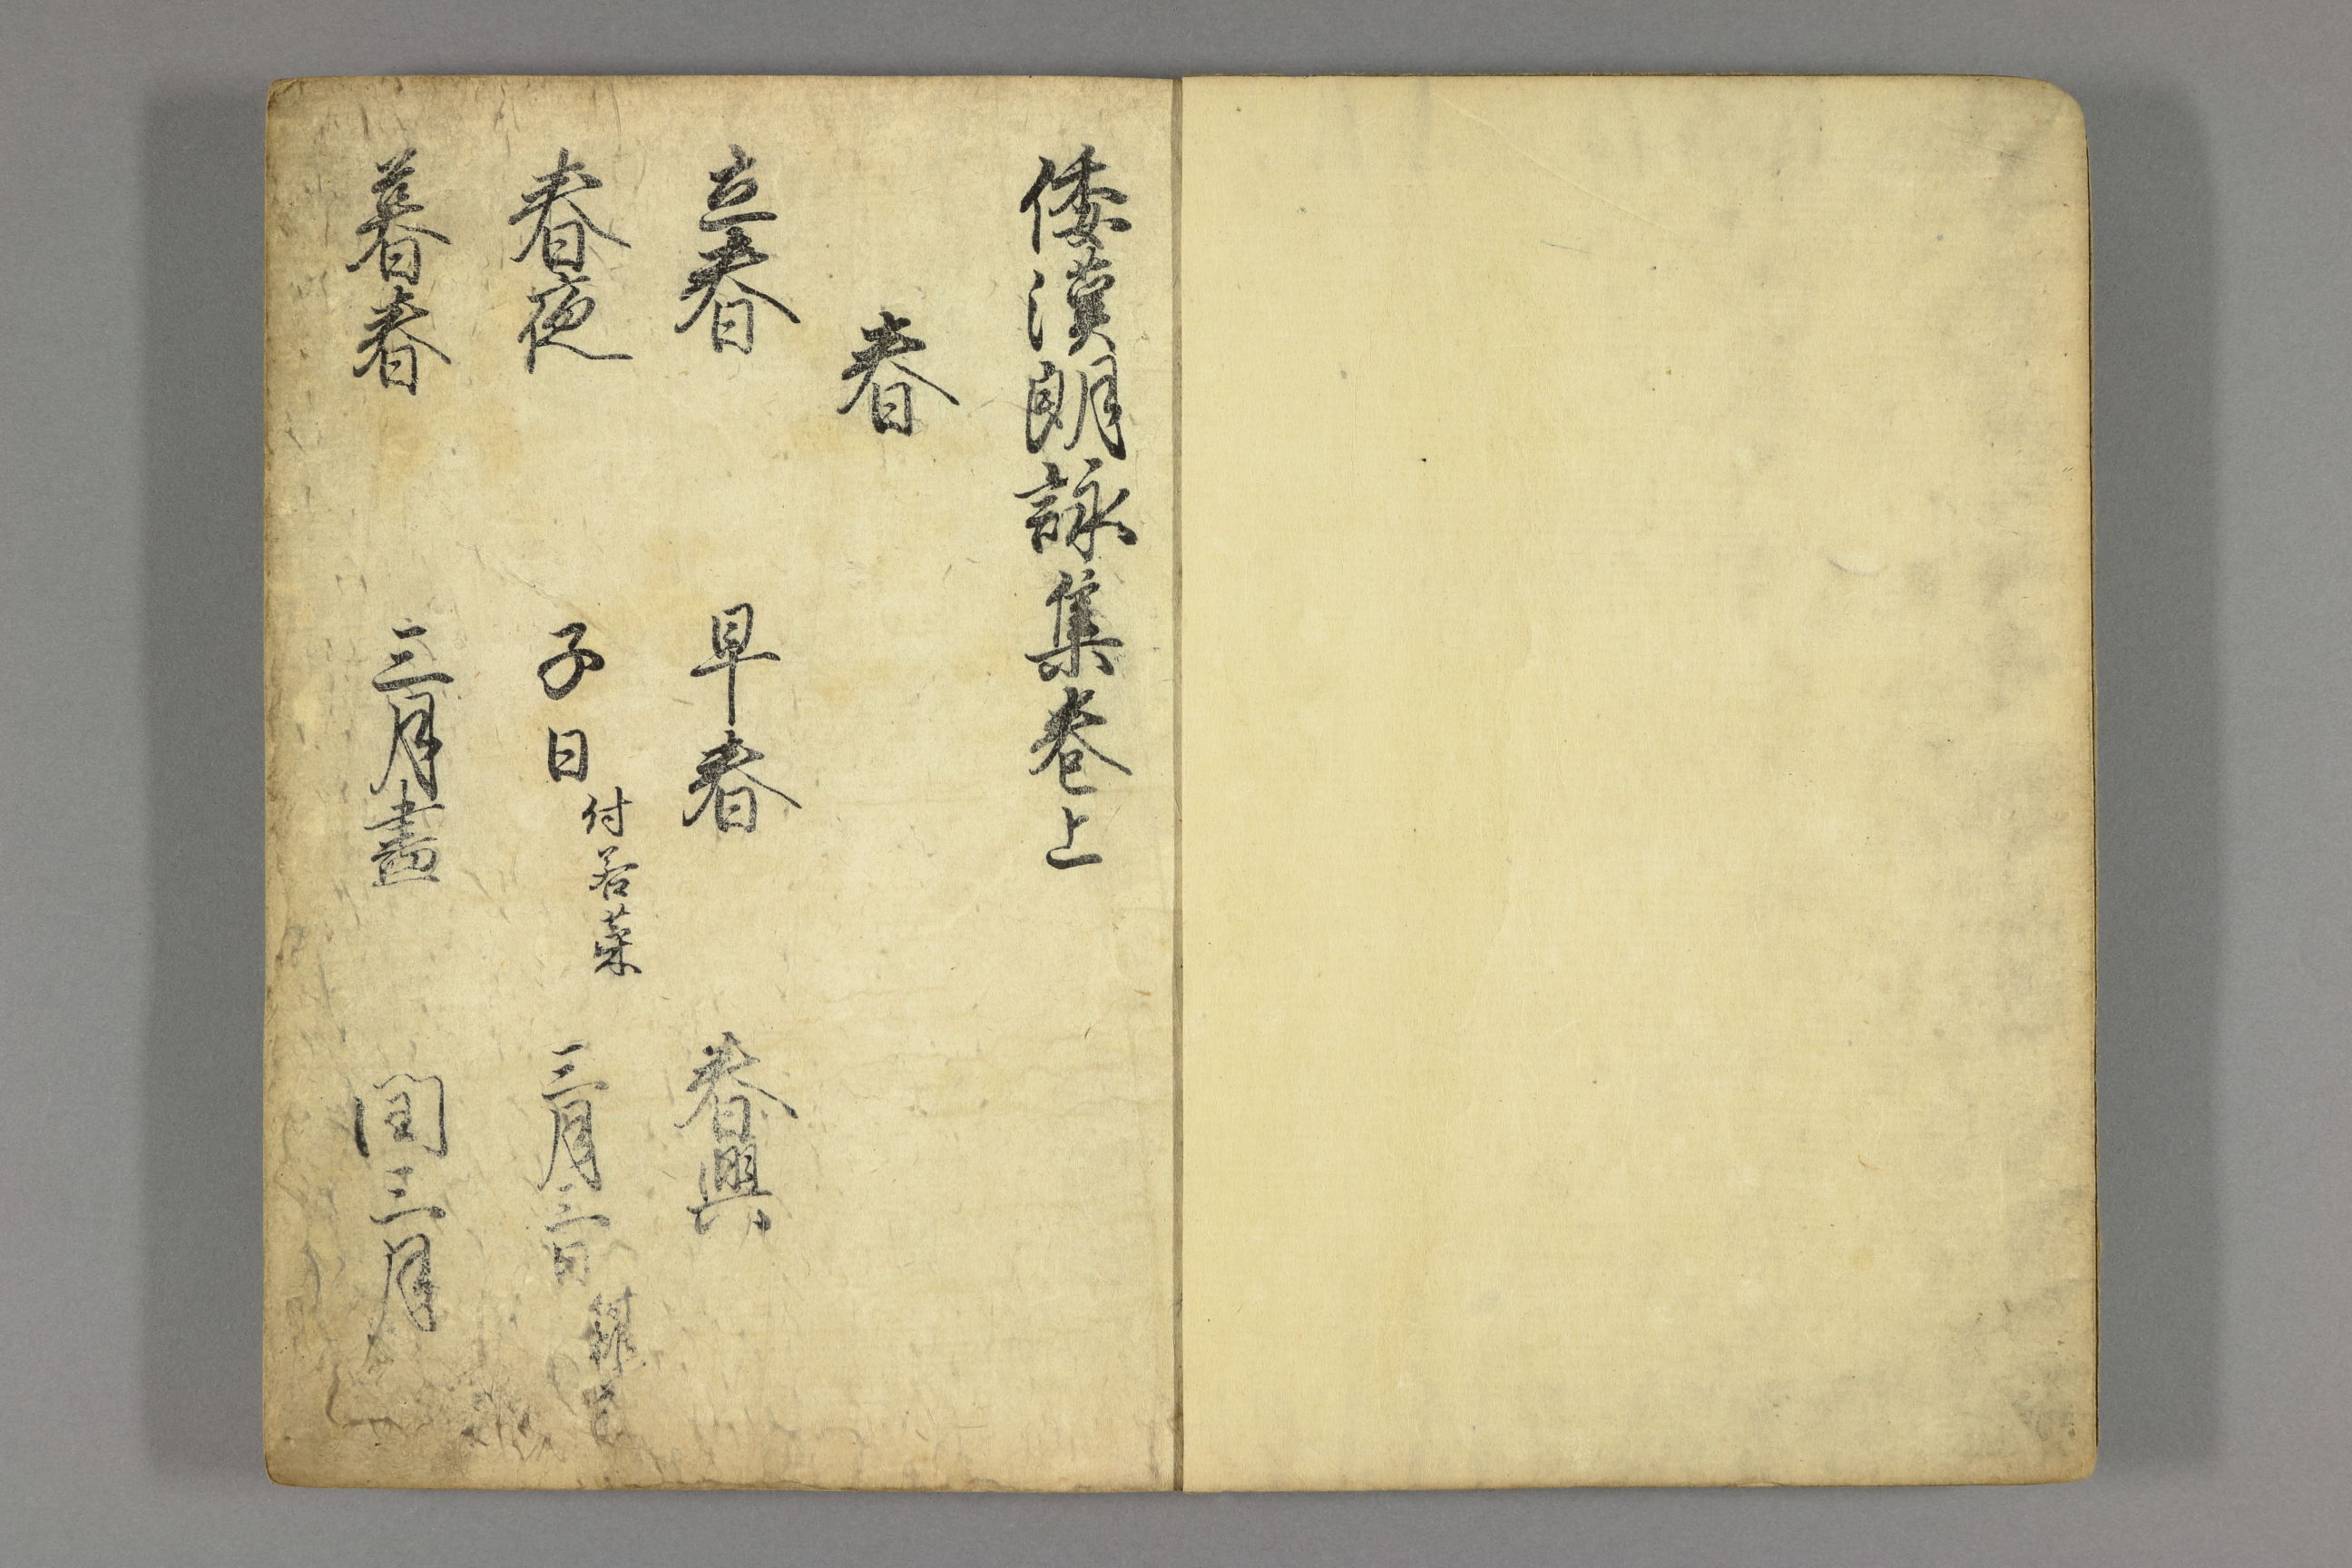 倭漢朗詠集巻上
春
立春　早春　春興
春夜　子日付若菜　三月三日
暮春　三月盡　閏三月